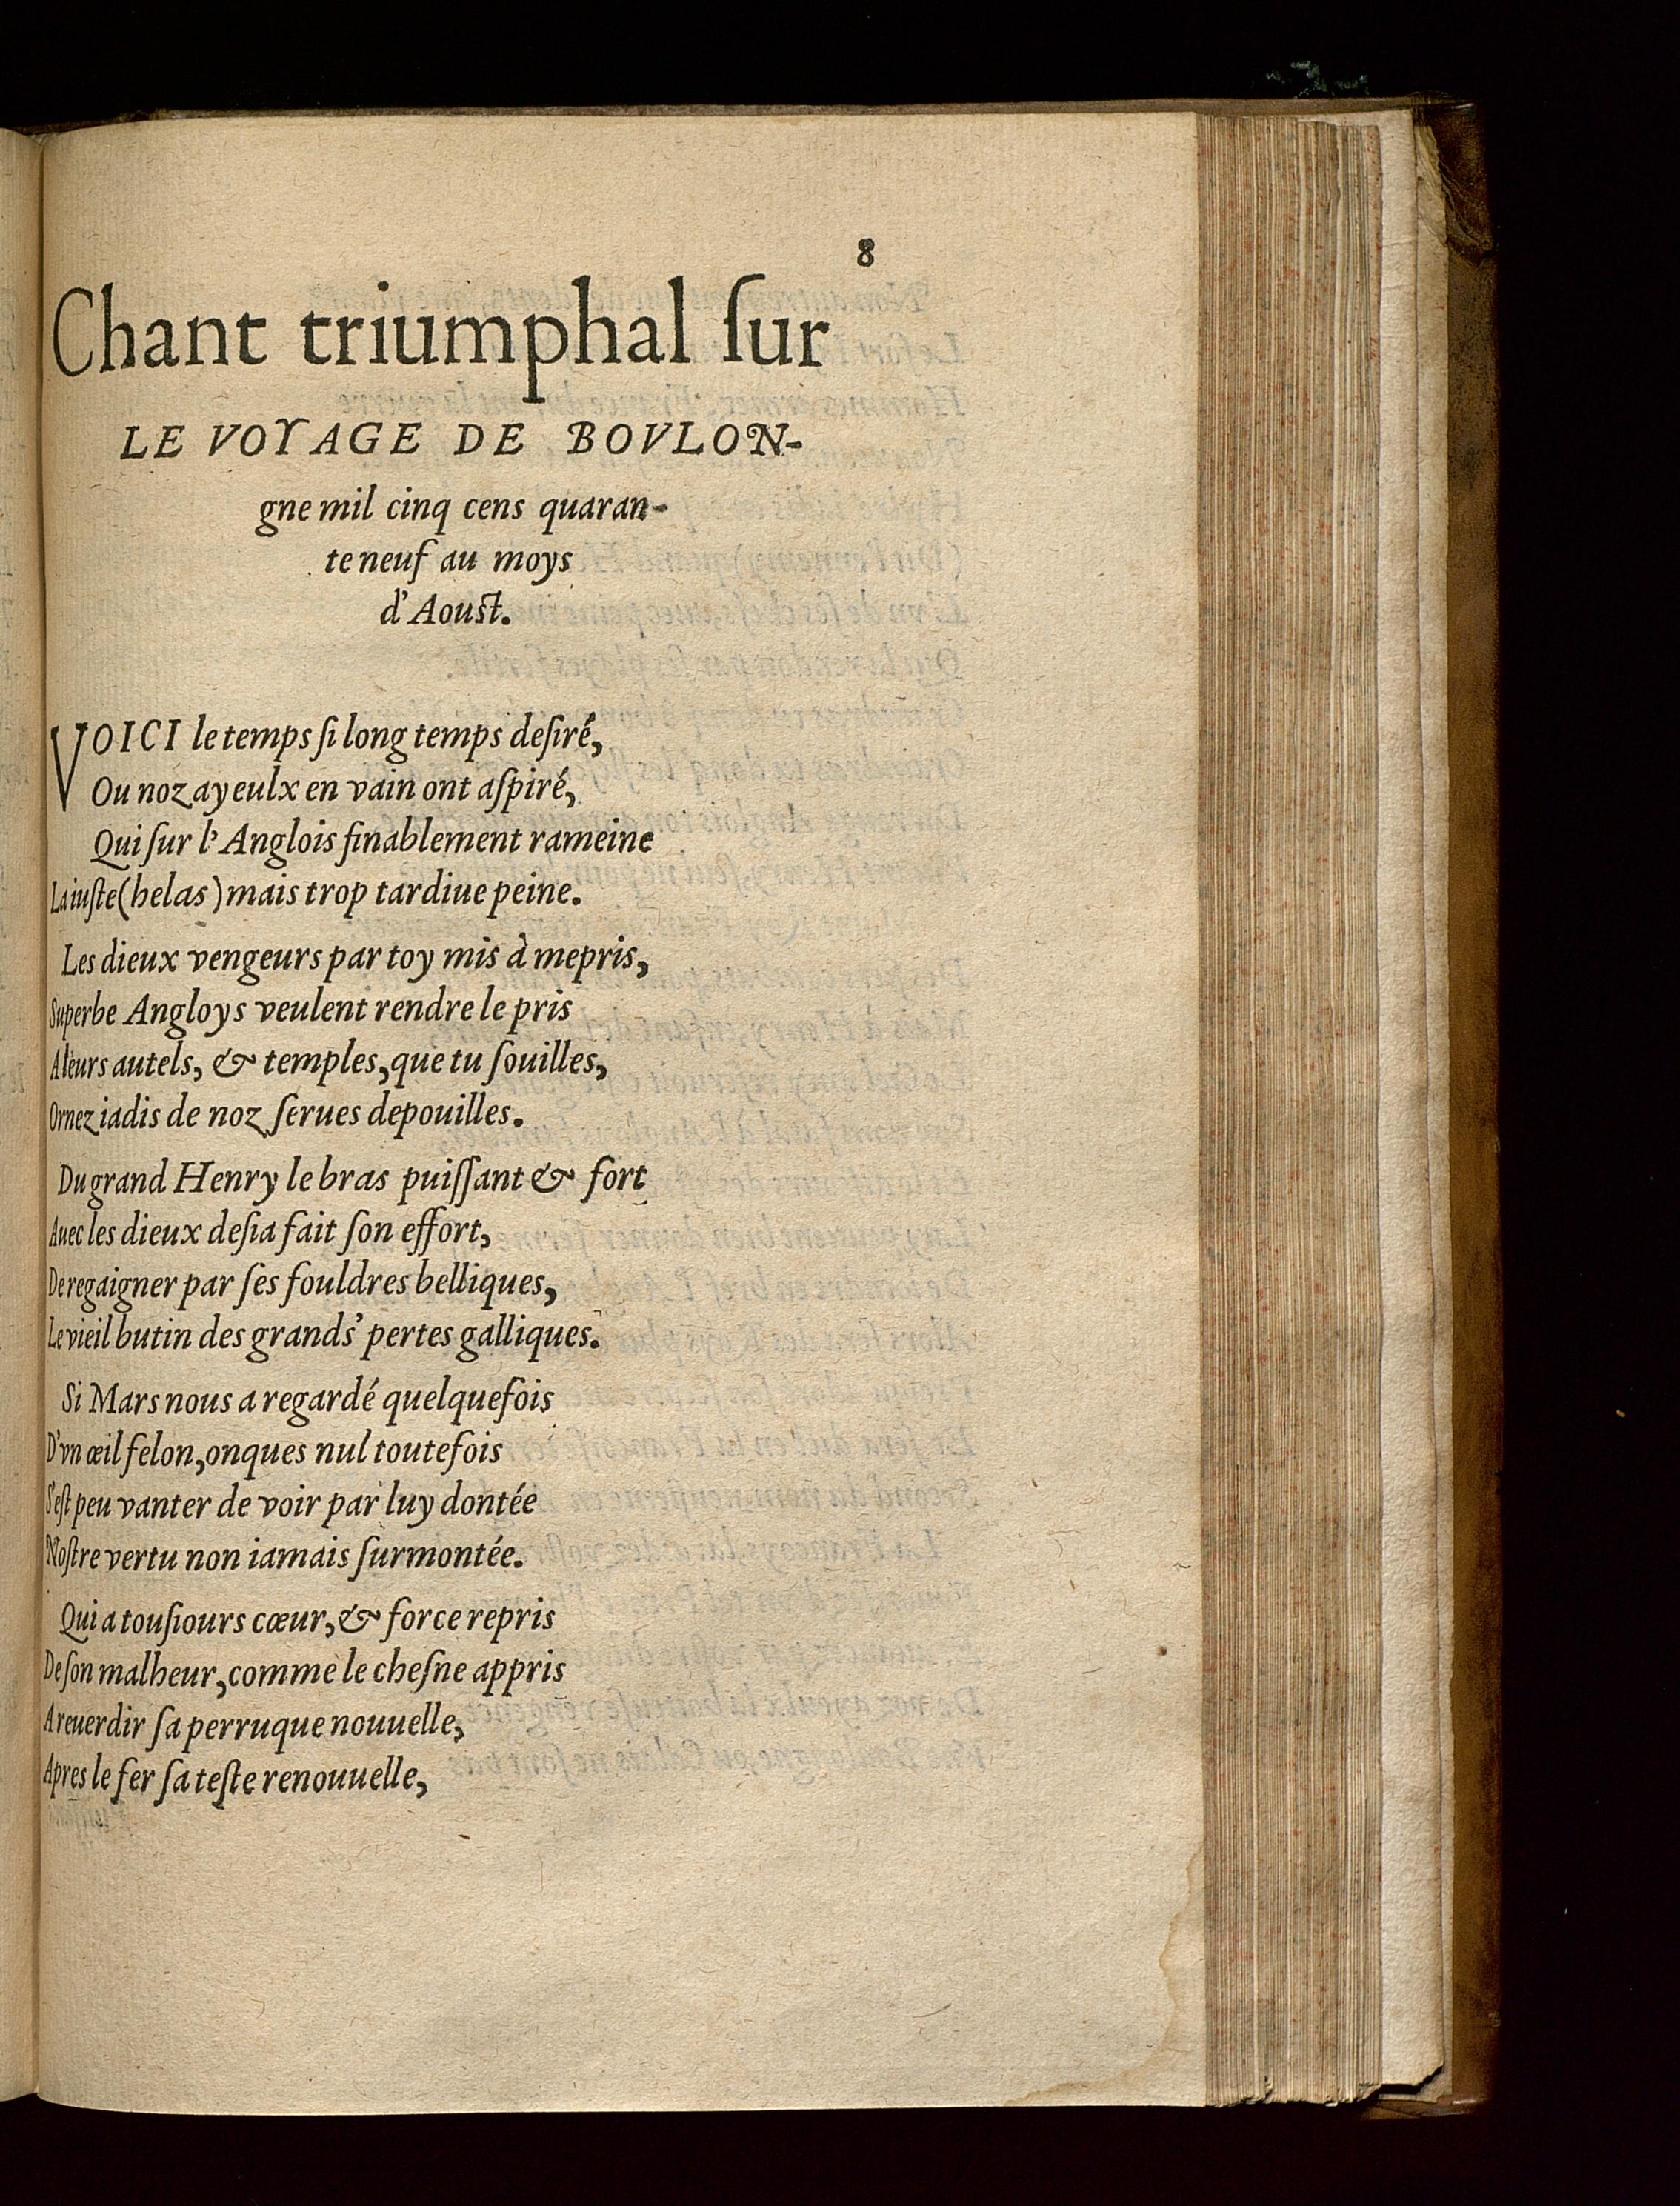 8
Chant triumphal ſur
LE VOYAGE DE BOVLON-
gne mil cinq cens quaran-
te neuf au moys
d'Aouſt.
VOICI le temps ſi long temps deſiré,
Ou noz ayeulx en vain ont aſpiré,
Qui ſur l'Anglois finablement rameine
La iuſte (helas) mais trop tardiue peine.
Les dieux vengeurs par toy mis à mepris,
Superbe Angloys veulent rendre le pris
A leurs autels, & temples, que tu ſouilles,
Ornez iadis de noz ſerues depouilles.
Du grand Henry le bras puiſſant & fort
Auec les dieux deſia fait ſon effort,
De regaigner par ſes fouldres belliques,
Le vieil butin des grands' pertes galliques.
Si Mars nous a regardé quelquefois
D'vn œil felon, onques nul toutefois
S'eſt peu vanter de voir par luy dontée
Noſtre vertu non iamais ſurmontée.
Qui a touſiours cœur, & force repris
De ſon malheur, comme le cheſne appris
A reuerdir ſa perruque nouuelle,
Apres le fer ſa teſte renouuelle,